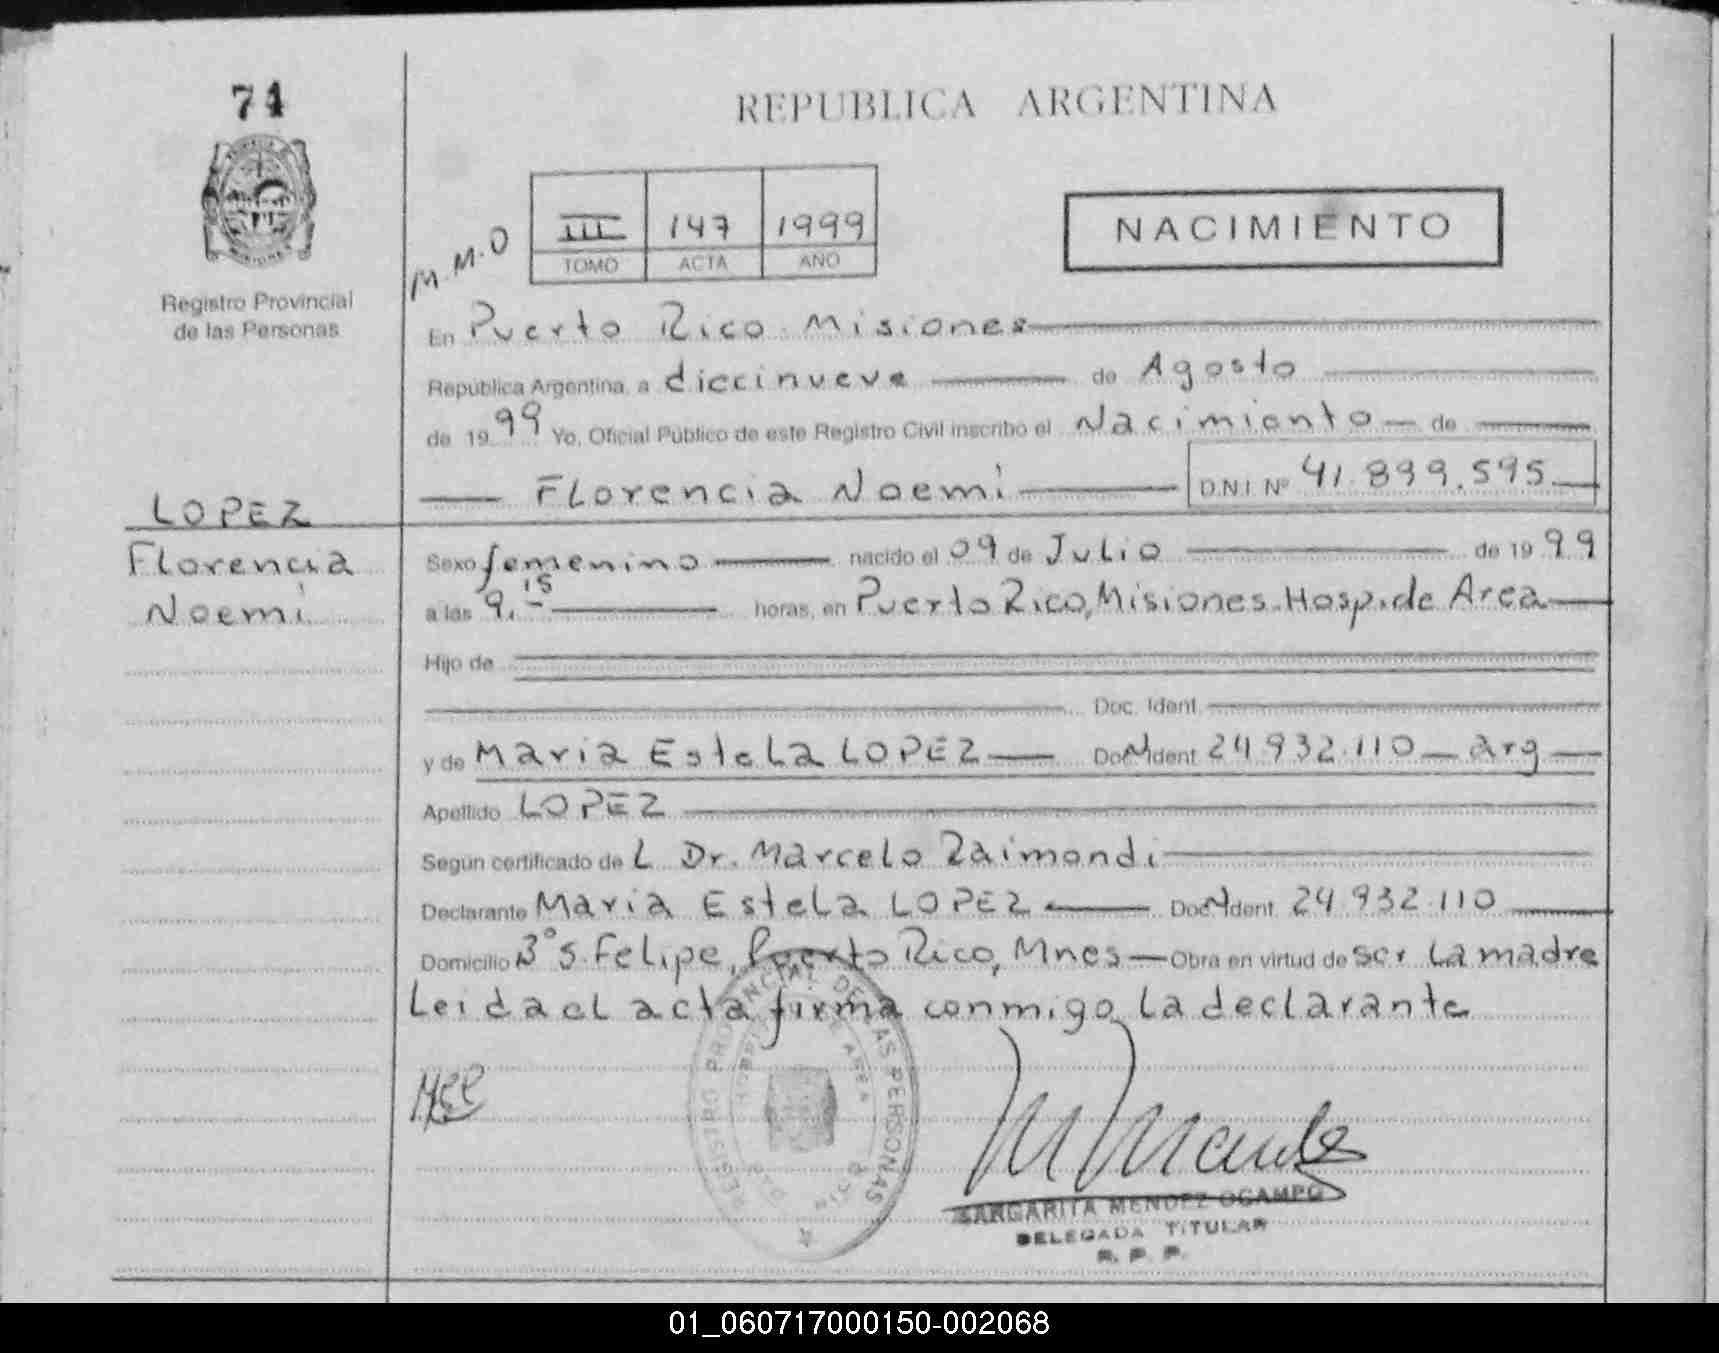 74
REPUBLICA ARGENTINA
III 147 1999
TOMO ACTA AÑO
M.M.O
NACIMIENTO
Registro Provincial
de las Personas
En Puerto Rico. Misiones
República Argentina, a diecinueve de Agosto
de 1999 Yo, Oficial Público de este Registro Civil inscribo el Nacimiento de
Florencia Noemi D.N.I. Nº 41.899.595
LOPEZ
Florencia
Noemi
Sexo femenino nacido el 09 de Julio de 1999
a las 9.15 horas, en Puerto Rico, Misiones. Hosp. de Area
Hijo de
Doc. Ident.
y de Maria Estela LOPEZ Doc. Ident 24.932.110 arg
Apellido LOPEZ
Según certificado de L Dr. Marcelo Raimondi
Declarante Maria Estela LOPEZ Doc. Ident. 24.932.110
Domicilio Bº S. Felipe, Puerto Rico, Mnes Obra en virtud de ser la madre
Leida el acta firma conmigo la declarante
REGISTRO PROVINCIAL DE LAS PERSONAS
MARGARITA MENDEZ OCAMPO
DELEGADA TITULAR
R. P. P.
01_060717000150-002068